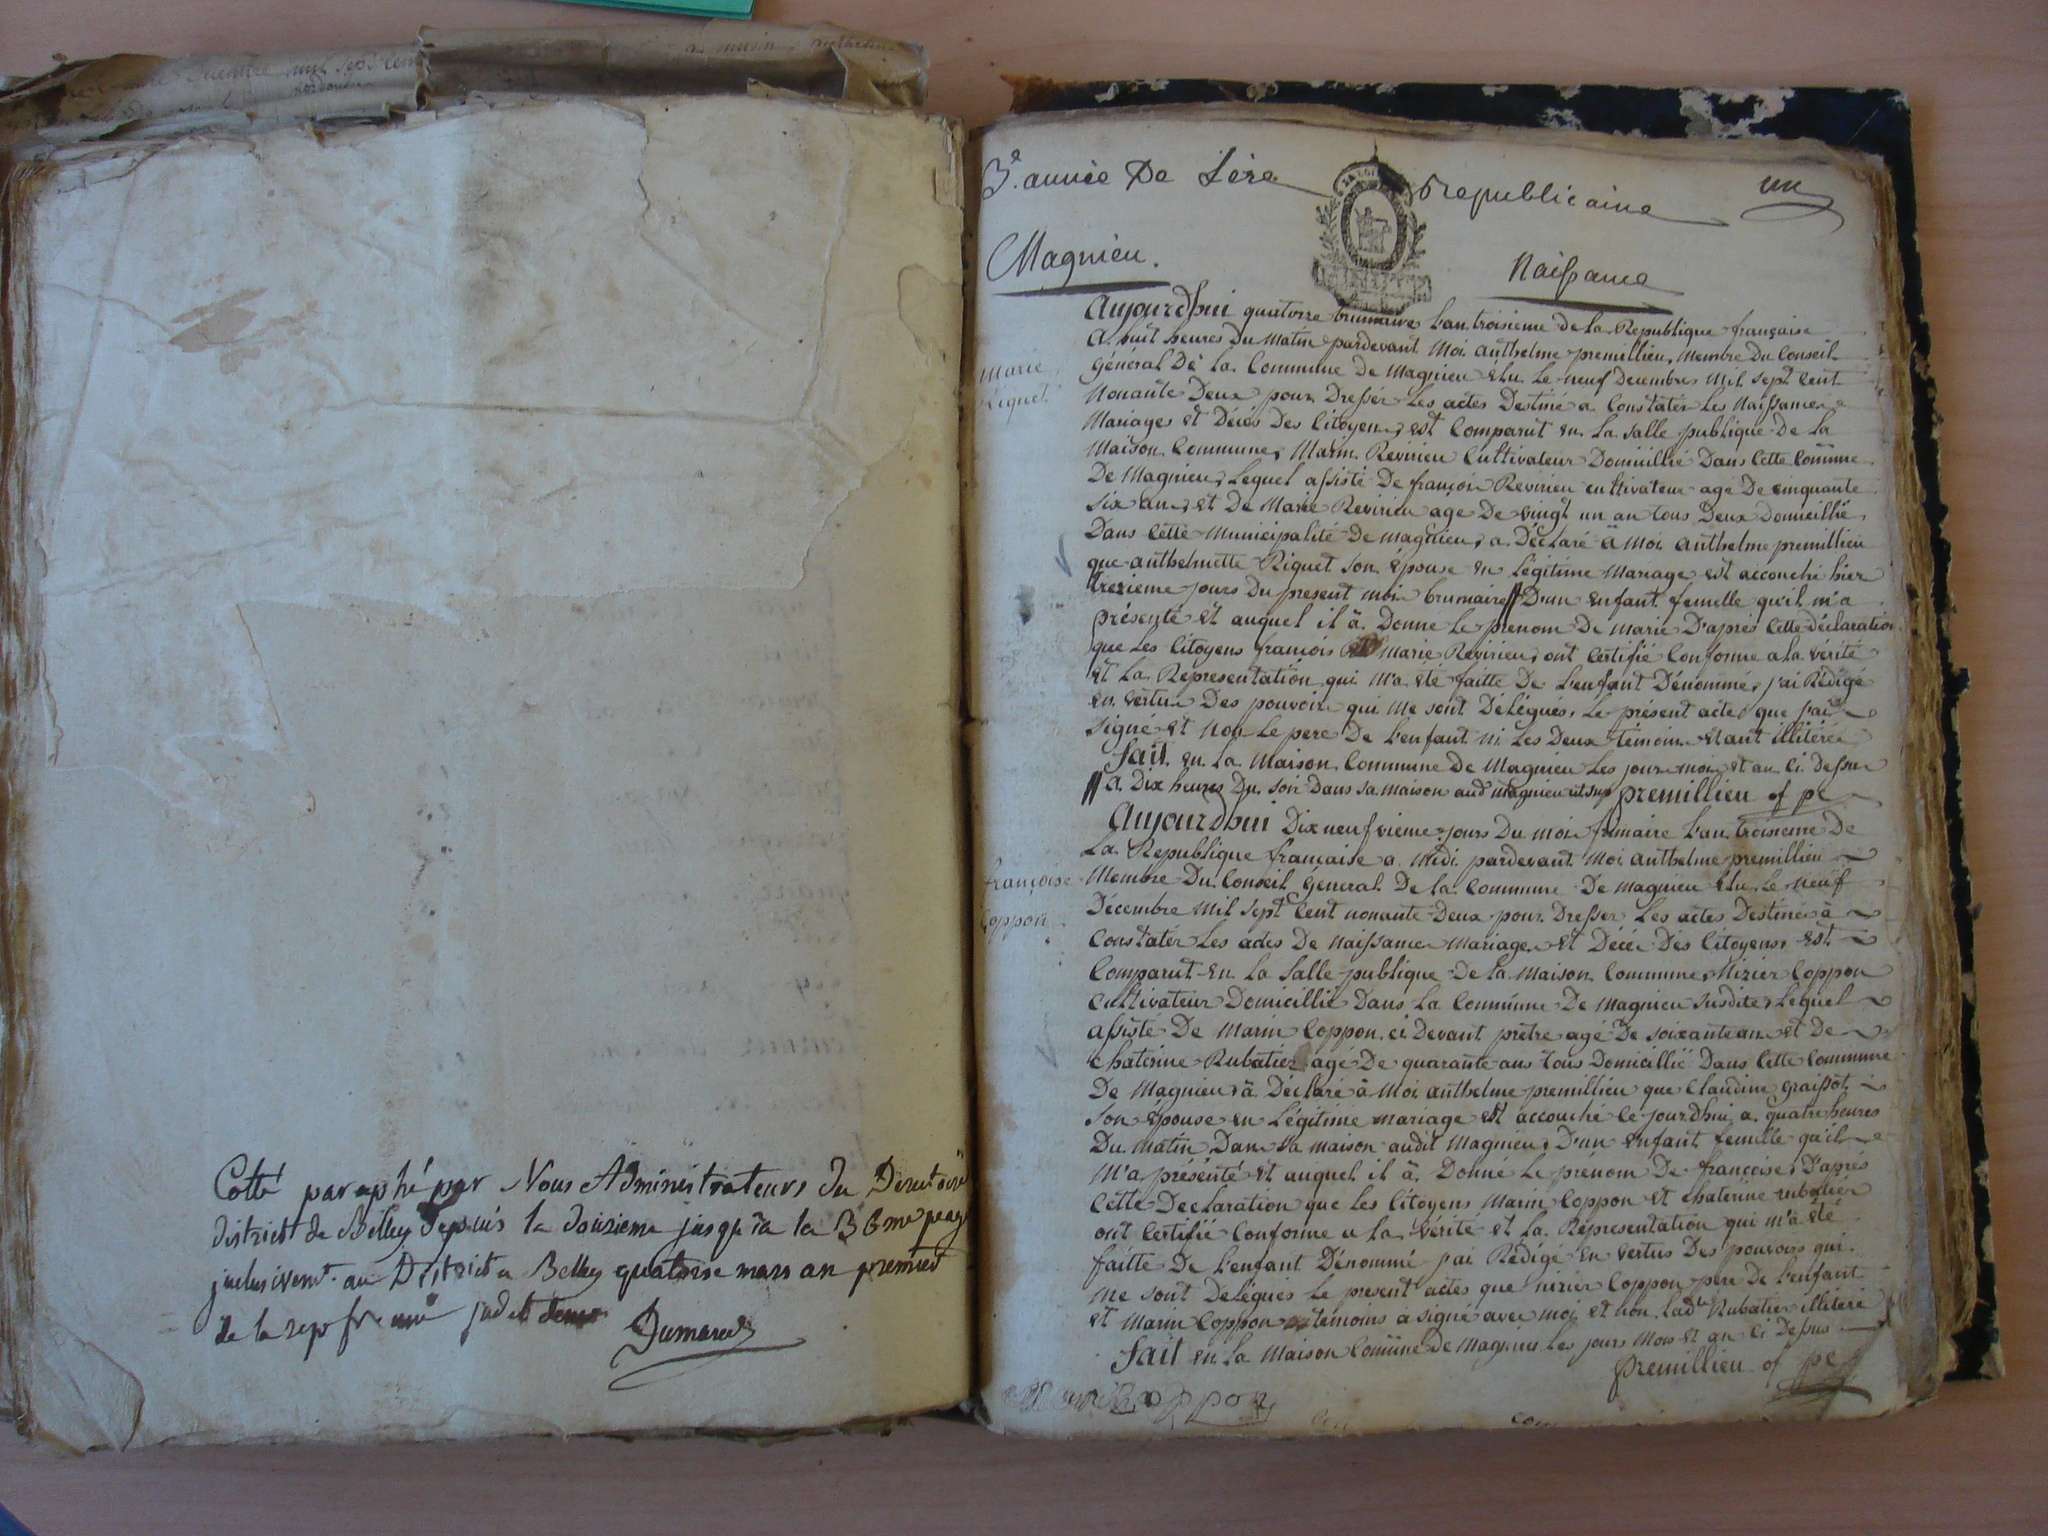 Cotté paraphé par Nous Administrateurs du Directoire
district de Belley depuis la douzieme jusqu'à la 36me page
inclusivemt. au District a Belley quatorze mars an premier
de la rep fr
Dumarest
3e. année De Lère Republicaine un
Magnieu. Naissance
Marie Riquet
Aujourdhui quatorze brumaire lan troisieme de la Republique française
A huit heures Du Matin pardevant Moi Anthelme premillieu Membre Du Conseil
général De la Commune de Magnieu élu le neuf Decembre Mil sept Cent
Nonante Deux pour Dresser Les actes Destiné a Constater Les Naissances
Mariages et Décès Des Citoyens, est Comparut en la salle publique De la
Maison Commune, Marin Revirieu Cultivateur Domicillié Dans Cette Comune
De Magnieu, Lequel assisté De françois Revirieu cultivateur agé De cinquante
six ans, et De Marie Revirieu age De vingt un an tous Deux Domicillié
Dans Cette Municipalité De Magnieu, a Déclaré à Moi Anthelme premillieu
que anthelmette Riquet son épouse en Légitime Mariage est accouché hier
trezieme jours Du present mois brumaire // D'un Enfant femelle qu'il m'a
présenté et auquel il à Donne Le prenom De Marie D'après Cette déclaration
que Les Citoyens françois Marie Revirieu, ont Certifié Conforme a la vérité
et La Representation qui M'a été faitte De L'enfant Dénommé, j'ai Rédigé
en vertu Des pouvoir qui me sont Délégués, Le présent acte, que j'ai
signé et Non Le pere De L'enfant ni Les Deux temoin étant illitéré
fait en La Maison Commune De Magnieu Les jour moi et an Ci Dessu
// A Dix heures Du soir Dans sa maison aud Magnieu premillieu of pe
françoise Coppon
Aujourdhui Dix neufvieme jours Du moi frimaire L'an troisieme De
La Republique française a Midi pardevant Moi Anthelme premillieu
Membre Du Conseil General De la Commune De Magnieu élu Le Neuf
Décembre Mil sept Cent nonante Deux pour Dresser Les actes Destiné à
Constatér Les actes De Naissance Mariage et Décée Des Citoyens, est
Comparut en La Salle publique De la Maison Commune, Nizier Coppon
Cultivateur Domicillié Dans La Commune De Magnieu susdite, Lequel
assisté De Marin Coppon ci Devant prêtre agé De soixante an et De
Chaterine Rubatier agé De quarante ans tous Domicillié Dans Cette Commune
De Magnieu, à Déclaré à Moi anthelme premillieu que Claudine graissot
son épouse en Légitime mariage est accouché ce jourdhui a quatre heures
Du matin Dans sa maison audit Magnieu, D'un enfant femelle qu'il
M'a présenté et auquel il à Donné Le prénom De françoise, D'après
Cette Declaration que Les Citoyens Marin Coppon et Chaterine rubatier
ont Certifié Conforme a La Vérité et La Réprésentation qui m'a été
faitte De L'enfant Dénommé j'ai Rédigé en vertus Des pouvoirs qui
me sont Délégués Le present actes que nizier Coppon pere De L'enfant
et Marin Coppon temoins à signé avec moi et non Ladte Rubatier illitéré
fait en La Maison Comune De Magnieu Les jours Mois et an Ci Dessus
premillieu of pe
Coppon